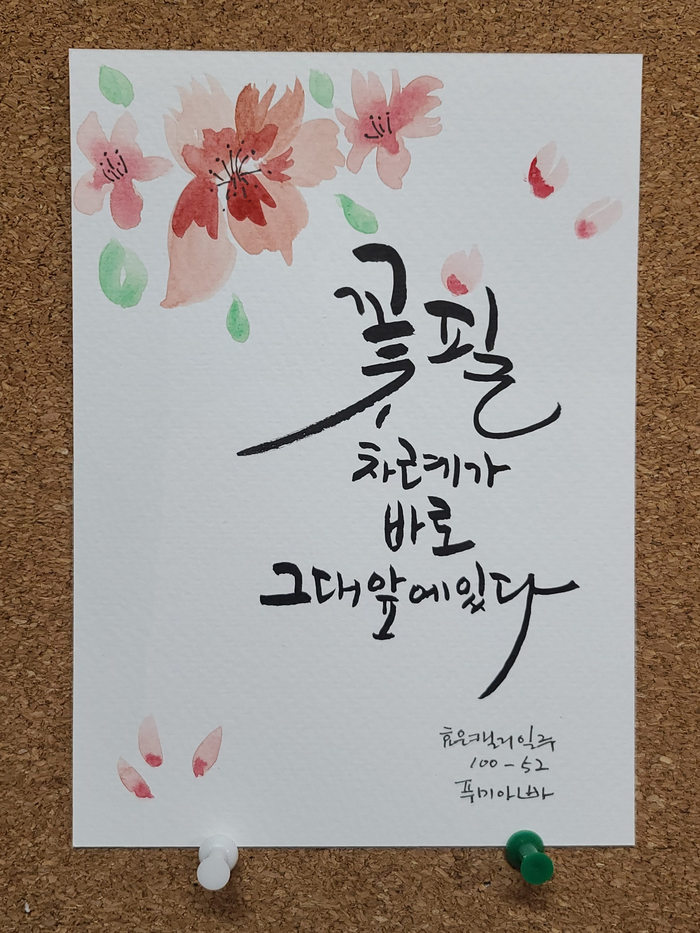 꽃필
차근계가
바로
그대앞에있다
효은캘리일주
100-52
푸미아빠